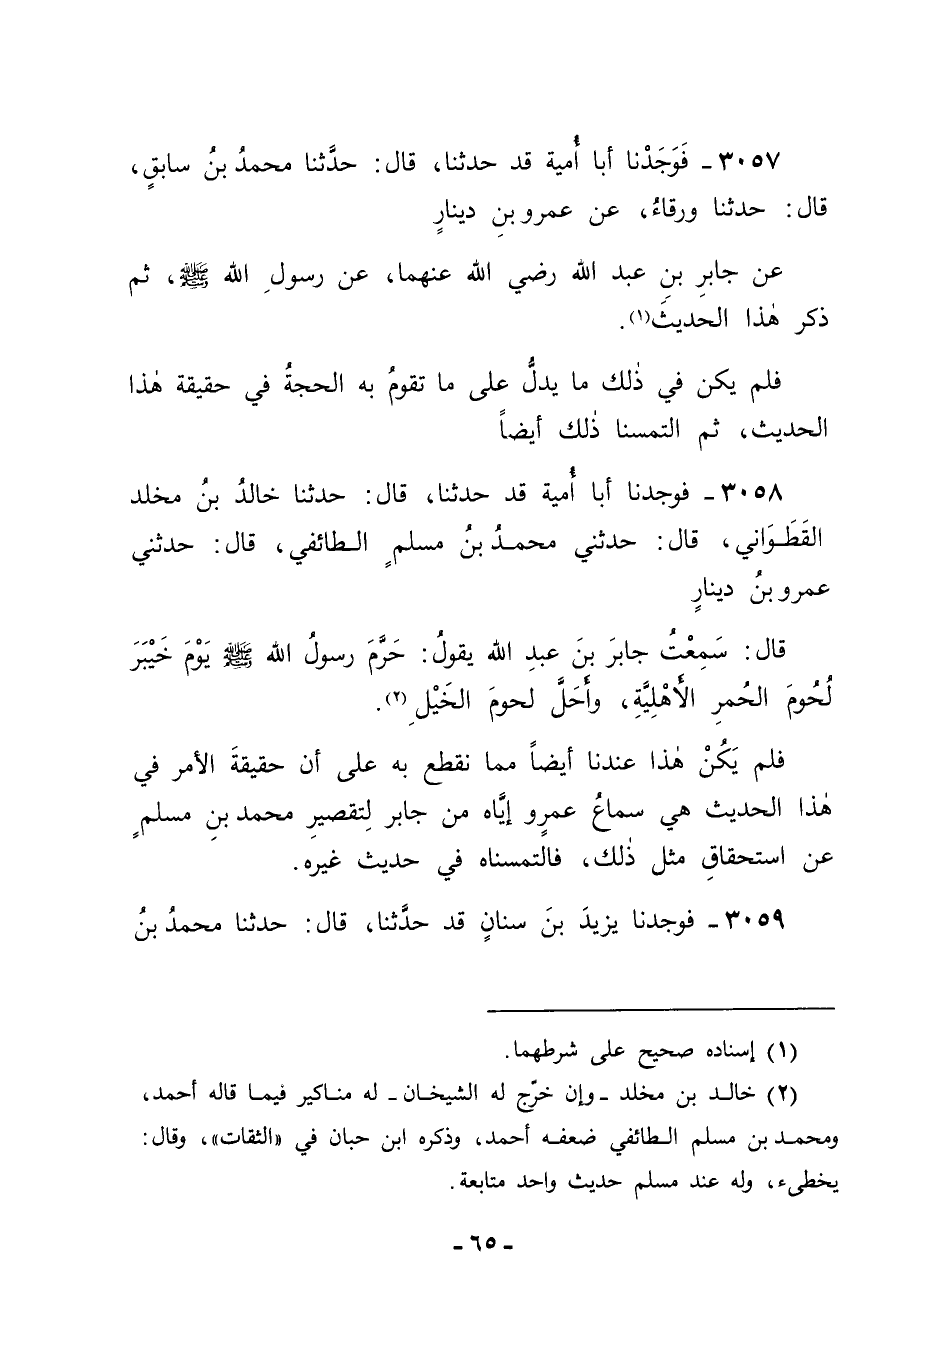 ٣٠٥٧ ـ فَوَجَدْنا أبا أُمية قد حدثنا، قال: حدَّثنا محمدُ بنُ سابقٍ،
قال: حدثنا ورقاءُ، عن عمرو بنِ دينارٍ
عن جابرِ بنِ عبد الله رضي الله عنهما، عن رسولِ الله ﷺ، ثم
ذكر هٰذا الحديثَ(١).
فلم يكن في ذٰلك ما يدلُّ على ما تقومُ به الحجةُ في حقيقة هٰذا
الحديث، ثم التمسنا ذٰلك أيضاً
٣٠٥٨ ـ فوجدنا أبا أُمية قد حدثنا، قال: حدثنا خالدُ بنُ مخلد
القَطَوَاني، قال: حدثني محمدُ بنُ مسلمٍ الطائفي، قال: حدثني
عمرو بنُ دينارٍ
قال: سَمِعْتُ جابرَ بنَ عبدِ الله يقولُ: حَرَّمَ رسولُ الله ﷺ يَوْمَ خَيْبَرَ
لُحُومَ الحُمرِ الأَهْلِيَّةِ، وأَحَلَّ لحومَ الخَيْلِ(٢).
فلم يَكُنْ هٰذا عندنا أيضاً مما نقطع به على أن حقيقةَ الأمر في
هٰذا الحديث هي سماعُ عمرٍو إيَّاه من جابر لِتقصيرِ محمد بنِ مسلمٍ
عن استحقاقِ مثل ذٰلك، فالتمسناه في حديث غيره.
٣٠٥٩ ـ فوجدنا يزيدَ بنَ سنانٍ قد حدَّثنا، قال: حدثنا محمدُ بنُ
(١) إسناده صحيح على شرطهما.
(٢) خالد بن مخلد ـ وإن خرّج له الشيخان ـ له مناكير فيما قاله أحمد،
ومحمد بن مسلم الطائفي ضعفه أحمد، وذكره ابن حبان في «الثقات»، وقال:
يخطىء، وله عند مسلم حديث واحد متابعة.
ـ ٦٥ ـ